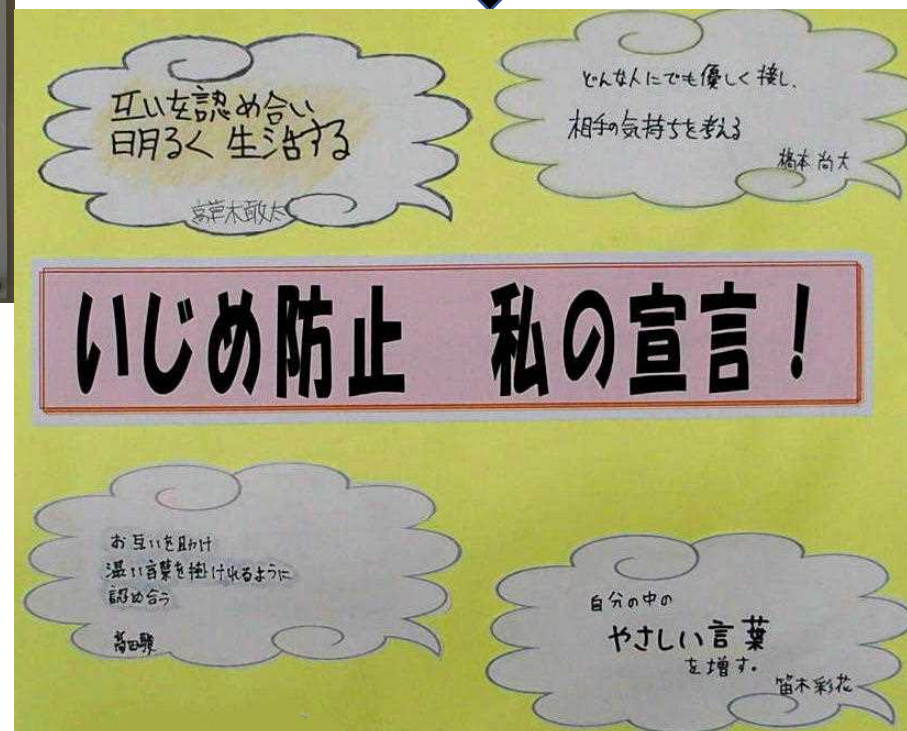 互いを認め合い
明るく生活する
宮草木敢太
どんな人にでも優しく接し、
相手の気持ちを考える
橋本尚大
いじめ防止 私の宣言！
お互いを助け
温い言葉を掛けれるように
認め合う
高田駿
自分の中の
やさしい言葉
を増す。
笛木彩花